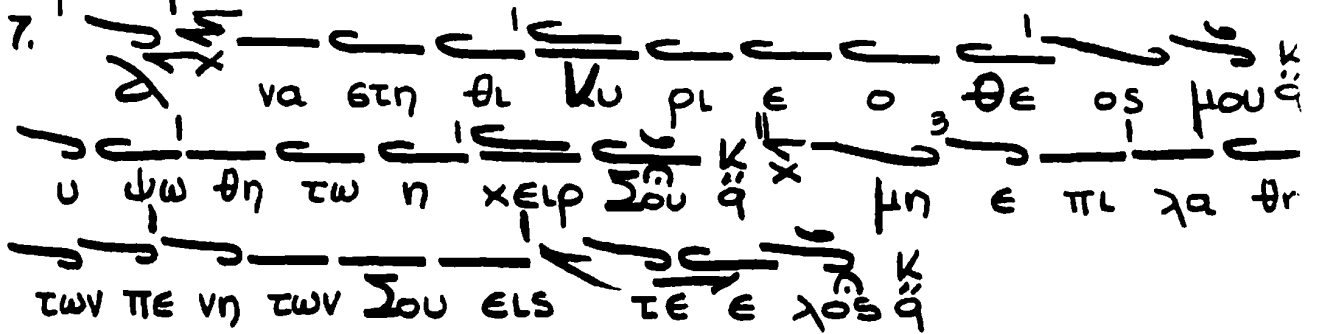 7. Α να στη θι Κυ ρι ε ο Θε ος μου
υ ψω θη τω η χειρ Σου μη ε πι λα θη
των πε νη των Σου εις τε ε λος